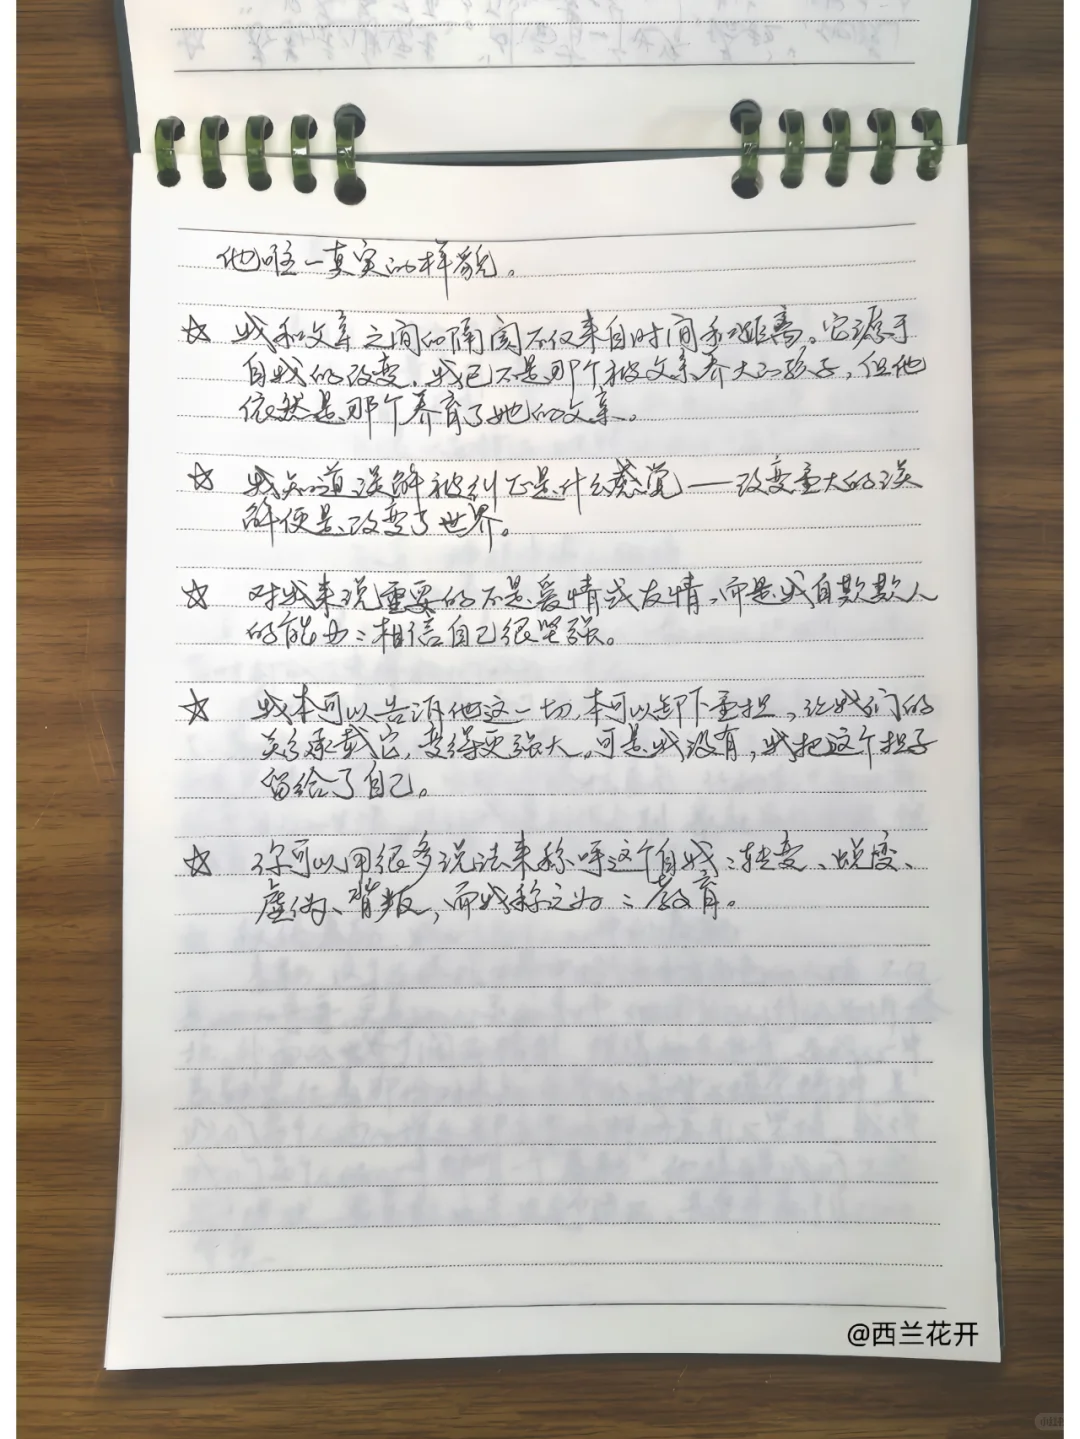 他唯一真实的样貌。
☆ 我和父亲之间的隔阂不仅来自时间和距离。它源于
自我的改变。我已不是那个被父亲养大的孩子,但他
依然是那个养育了她的父亲。
☆ 我知道误解被纠正是什么感觉——改变重大的误
解便是改变了世界。
☆ 对我来说重要的不是爱情或友情,而是我自欺欺人
的能力:相信自己很坚强。
☆ 我本可以告诉他这一切,本可以卸下重担,让我们的
关系承载它,变得更强大。可是我没有,我把这个担子
留给了自己。
☆ 你可以用很多说法来称呼这个自我:转变、蜕变、
虚伪、背叛,而我称之为:教育。
@西兰花开